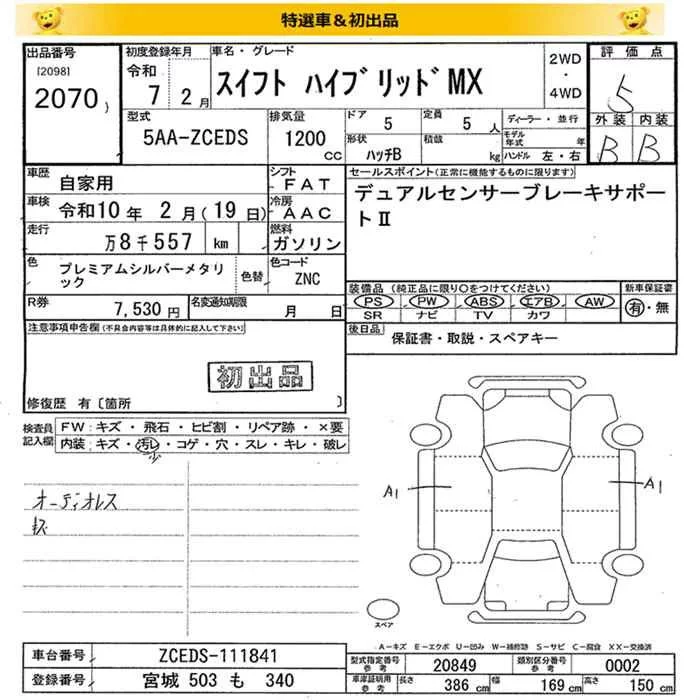 特選車＆初出品
出品番号
[2098]
2070 )
初度登録年月
令和
7 2月
車名・グレード
スイフト ハイブリッドMX
2WD
・
4WD
評価点
5
外装 内装
B B
型式
5AA-ZCEDS
排気量
1200
CC
ドア
5
定員
5 人
形状
ハッチB
積載
kg
ディーラー・並行
モデル年式 年
ハンドル 左・右
車歴
自家用
シフト
FAT
車検
令和10年 2月(19日)
冷房
AAC
走行
万8千557 km
燃料
ガソリン
色
プレミアムシルバーメタリック
色替
色コード
ZNC
R券
7,530円
名変通知期限
月 日
セールスポイント(正常に機能するものに限ります)
デュアルセンサーブレーキサポートⅡ
装備品 (純正品に限り○をつけてください)
PS PW ABS エアB AW
SR ナビ TV カワ
新車保証書
有・無
後日品
保証書・取説・スペアキー
注意事項申告欄(不具合内容等は具体的に記入して下さい)
初出品
修復歴 有〔箇所 〕
検査員記入欄
FW: キズ・飛石・ヒビ割・リペア跡・×要
内装: キズ・汚レ・コゲ・穴・スレ・キレ・破レ
小
オーディオレス
A1
A1
スペア
A-キズ E-エクボ U-凹み W-補修跡 S-サビ C-腐食 XX-交換済
車台番号
ZCEDS-111841
登録番号
宮城 503 も 340
型式指定番号
参考
20849
類別区分番号
参考
0002
車庫証明用
参考
長さ 386 cm
幅 169 cm
高さ 150 cm